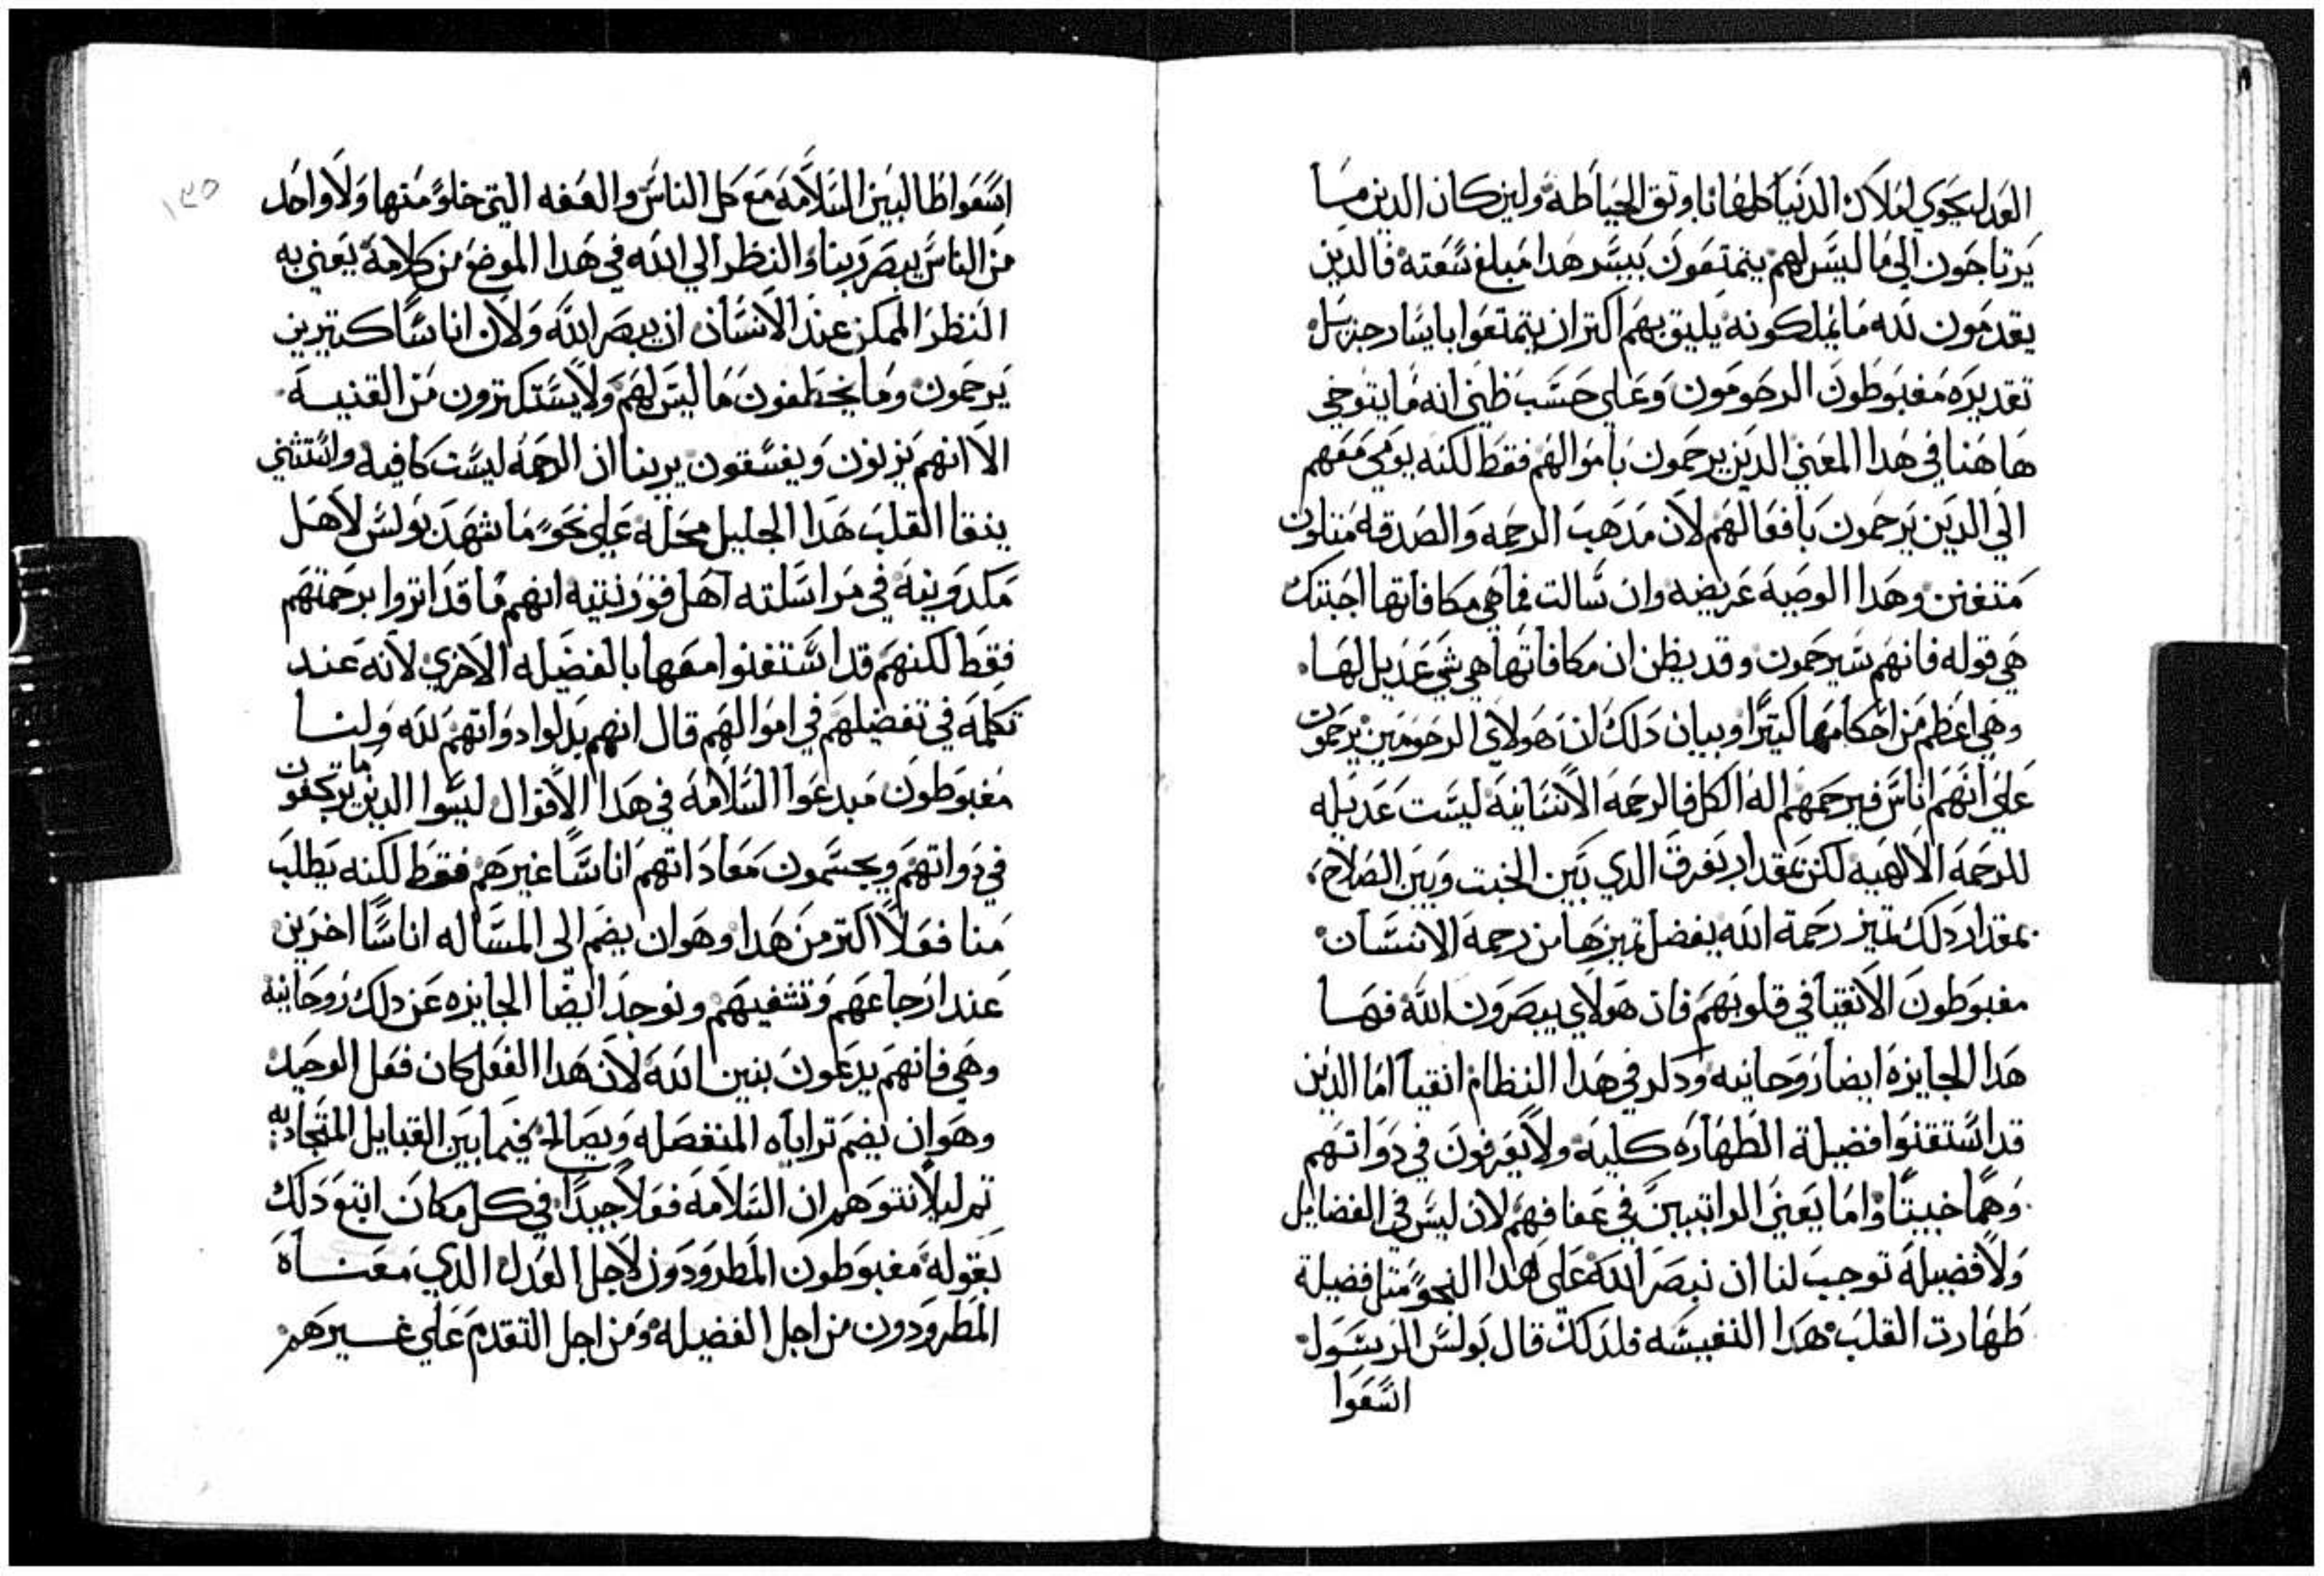 العدل يحوي املاك الدنيا كلها اوتق الحياطة ولين كان الدين ما
يرتاحون الي ما ليس لهم يتمتعون بيسر هدا مبلغ سعته فالدين
يقدمون لله ما يملكونه يليق بهم اكتر ان يتمتعوا بايسار جزيل
تقديره مغبوطون الرحومون وعلي حسب ظني انه ما يتوخي
هاهنا في هدا المعني الدين يرحمون باموالهم فقط لكنه يومي معهم
الي الدين يرحمون بافعالهم لان مدهب الرحمه والصدقه متلون
متفنن وهدا الوصية عريضه وان سالت فما هي مكافاتها اجبتك
هي قوله فانهم سيرحمون وقد يظن ان مكافاتها هي شي عديل لها
وهي اعظم من احكامها كتيرًا وبيان دلك ان هولاي الرحومين يرحمون
علي انهم اناس فيرحمهم اله الكل فالرحمة الانسانية ليست عديله
للرحمة الالهيه لكن بمقدار تفرق الدي بين الخبت وبين الصلاح
بمقدار دلك تميز رحمة الله يفضل تميزها من رحمة الانسان
مغبوطون الانقيا في قلوبهم فان هولاي يبصرون الله فها
هدا الجايزه ايضا روحانيه ودكر في هدا النظام انقيا اما الدين
قد استقنوا فضيلة الطهاره كلية ولا يعرفون في دواتهم
وهمًا خبيتًا واما يعني الراتبين في عفافهم لان ليس في الفضايل
ولا فضيلة توجب لنا ان نبصر الله علي هدا النحو متل فضيلة
طهارت القلب هدا النفيسه فلدلك قال بولس الرسول
اسعوا
اسعوا طالبين السلامة مع كل الناس والعفه التي خلوً منها ولا واحد
من الناس يبصر ربنا والنظر الي الله في هدا الموضع من كلامه يعني به
النظر الممكن عند الانسان ان يبصر الله ولان اناسًا كتيرين
يرحمون وما يخطفون ما ليس لهم ولا يستكترون من القنيه
الا انهم يزنون ويفسقون يرينا ان الرحمة ليست كافيه واستثني
بنقا القلب هدا الجليل محله علي نحو ما شهد بولس لاهل
مكدونية في مراسلته اهل قورنتيه انهم ما قد اتروا برحمتهم
فقط لكنهم قد استغنوا معها بالفضيله الاخري لانه عند
تكلمه في تفضيلهم في اموالهم قال انهم بدلوا دواتهم لله ولنا
مغبوطون مبدعوا السلامة في هدا الاقوال ليسوا الدين ما يركعون
في دواتهم ويحسمون معاداتهم اناسًا غيرهم فقط لكنه يطلب
منا فعلاً اكتر من هدا وهو ان يضم الي المسالة اناسًا اخرين
عند ارجاعهم وتشفيهم ونوجد ايضًا الجايزه عن دلك روحانيه
وهي فانهم يدعون بنين الله لان هدا الفعل كان فعل الوحيد
وهو ان يضم تراياه المنفصله ويصالح فيما بين القبايل المتجادبه
تم ليلا نتوهم ان السلامة فعلاً جيدًا في كل مكان اتبع دلك
بقوله مغبوطون المطرودون لاجل العدل الدي معناه
المطرودون من اجل الفضيله ومن اجل التقدم علي غيرهم